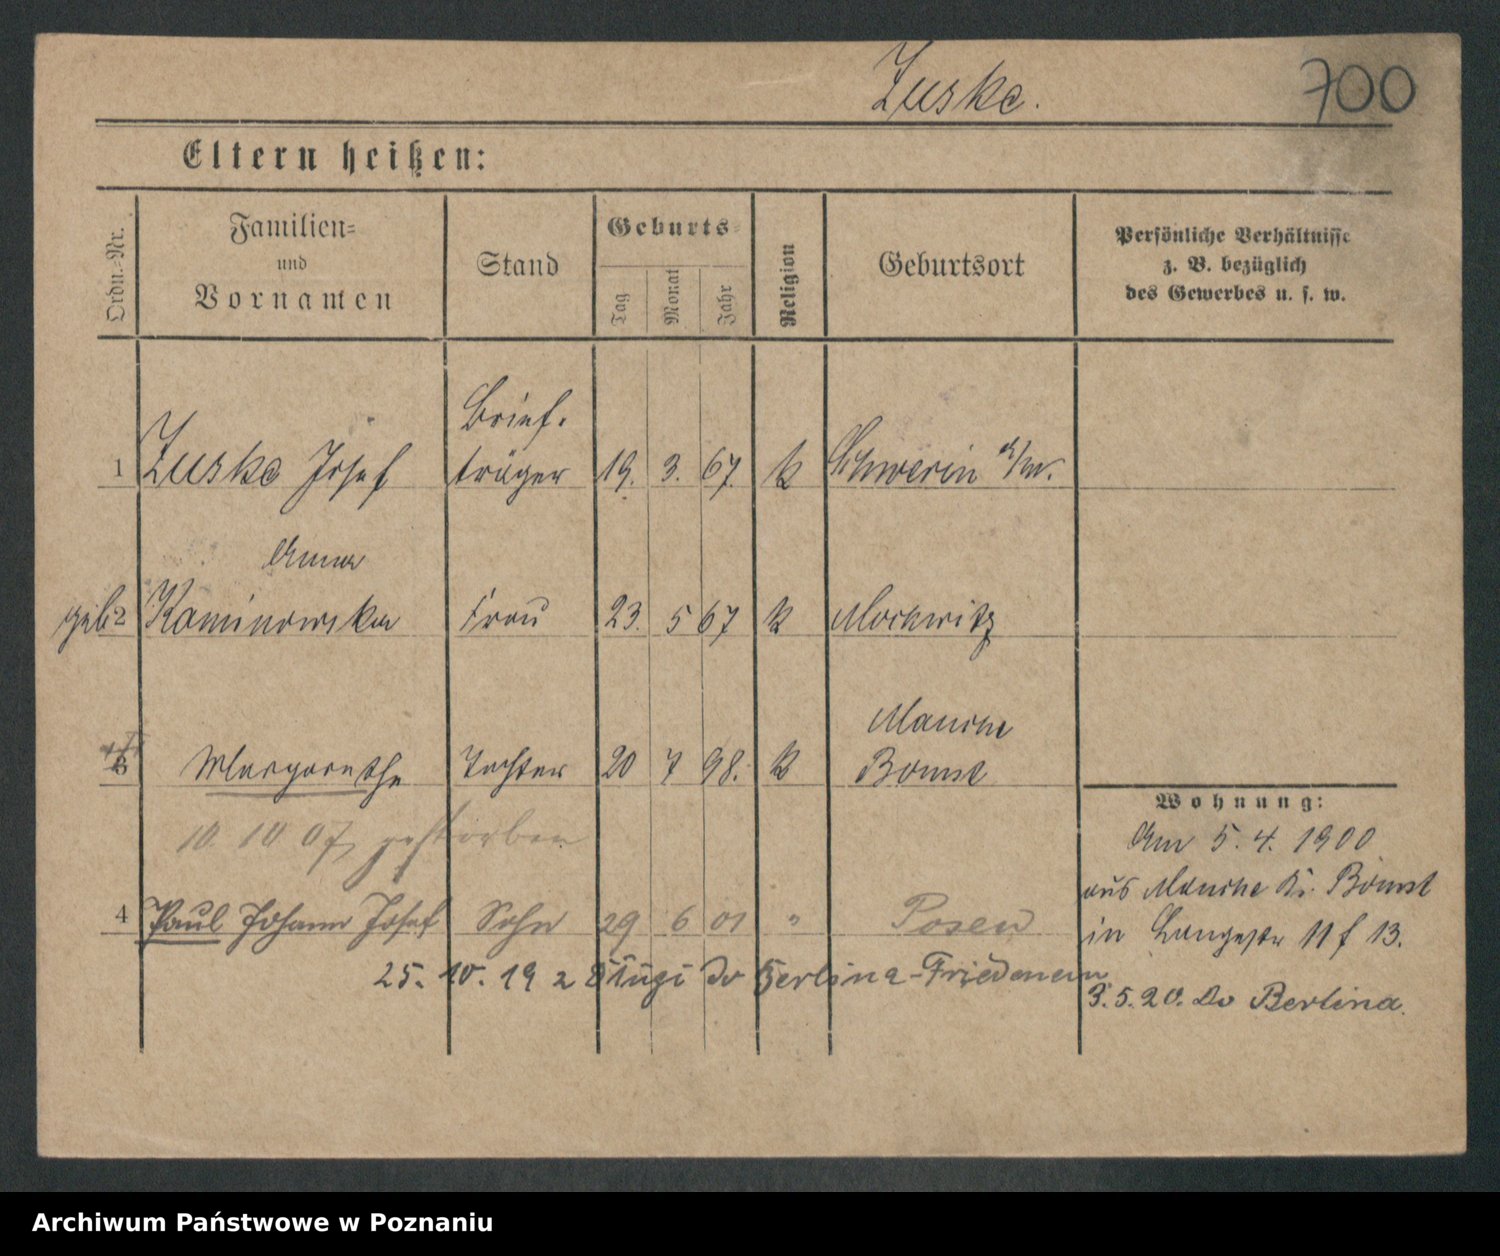 Zuske.
700
Eltern heißen:
Ordn.-Nr.
Familien-
und
Vornamen
Stand
Geburts-
Tag
Monat
Jahr
Religion
Geburtsort
Persönliche Verhältnisse
z. B. bezüglich
des Gewerbes u. s. w.
Brief-
1 Zuske Josef träger 19. 3. 67. k Schwerin a/W.
Anna
geb. 2 Kaminowska Frau 23. 5 67 k
Manche
3 Margarethe Tochter 20 7 98. k Bomst
10. 10 07 gestorben
Wohnung:
Am 5. 4. 1900
aus Manche Kr. Bomst
4 Paul Johann Josef Sohn 29 6 01 " Posen
in Langestr 11 f 13.
25. 10. 19 z do Berlina-Friedenau
3.5.20. do Berlina.
Archiwum Państwowe w Poznaniu